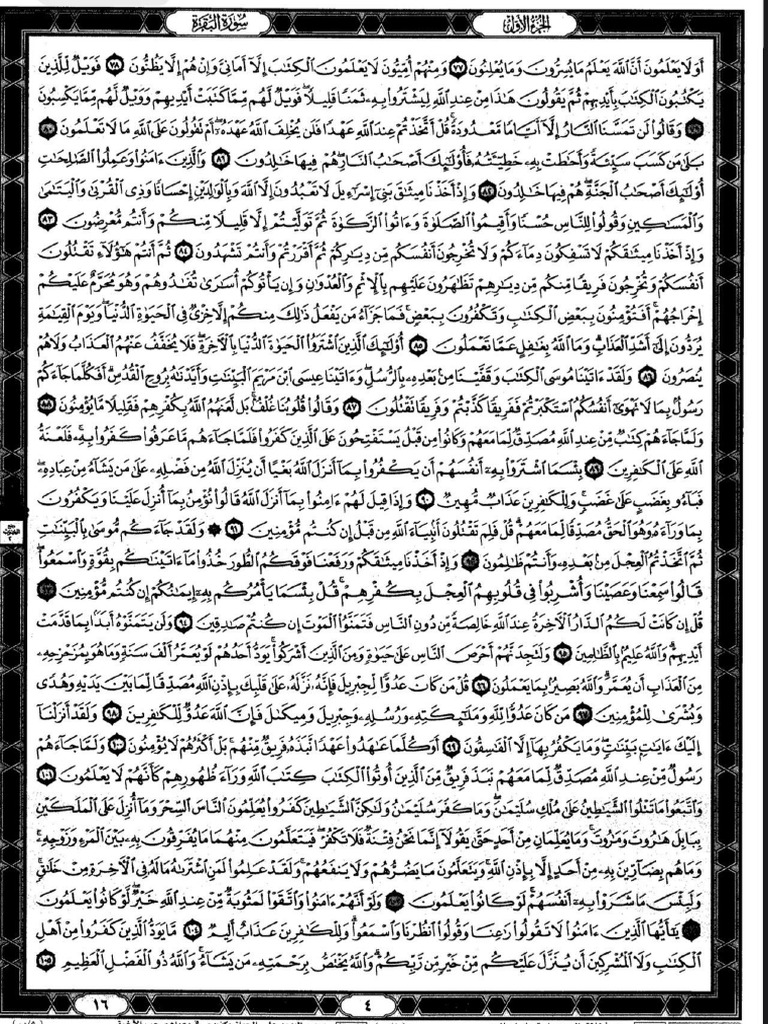 الجزء الأول
سورة البقرة
أَوَلَا يَعْلَمُونَ أَنَّ اللَّهَ يَعْلَمُ مَا يُسِرُّونَ وَمَا يُعْلِنُونَ ٧٧ وَمِنْهُمْ أُمِّيُّونَ لَا يَعْلَمُونَ الْكِتَابَ إِلَّا أَمَانِيَّ وَإِنْ هُمْ إِلَّا يَظُنُّونَ ٧٨ فَوَيْلٌ لِلَّذِينَ
يَكْتُبُونَ الْكِتَابَ بِأَيْدِيهِمْ ثُمَّ يَقُولُونَ هَٰذَا مِنْ عِنْدِ اللَّهِ لِيَشْتَرُوا بِهِ ثَمَنًا قَلِيلًا فَوَيْلٌ لَهُمْ مِمَّا كَتَبَتْ أَيْدِيهِمْ وَوَيْلٌ لَهُمْ مِمَّا يَكْسِبُونَ
٧٩ وَقَالُوا لَنْ تَمَسَّنَا النَّارُ إِلَّا أَيَّامًا مَعْدُودَةً قُلْ أَتَّخَذْتُمْ عِنْدَ اللَّهِ عَهْدًا فَلَنْ يُخْلِفَ اللَّهُ عَهْدَهُ أَمْ تَقُولُونَ عَلَى اللَّهِ مَا لَا تَعْلَمُونَ ٨٠
بَلَىٰ مَنْ كَسَبَ سَيِّئَةً وَأَحَاطَتْ بِهِ خَطِيئَتُهُ فَأُولَٰئِكَ أَصْحَابُ النَّارِ هُمْ فِيهَا خَالِدُونَ ٨١ وَالَّذِينَ آمَنُوا وَعَمِلُوا الصَّالِحَاتِ
أُولَٰئِكَ أَصْحَابُ الْجَنَّةِ هُمْ فِيهَا خَالِدُونَ ٨٢ وَإِذْ أَخَذْنَا مِيثَاقَ بَنِي إِسْرَائِيلَ لَا تَعْبُدُونَ إِلَّا اللَّهَ وَبِالْوَالِدَيْنِ إِحْسَانًا وَذِي الْقُرْبَىٰ وَالْيَتَامَىٰ
وَالْمَسَاكِينِ وَقُولُوا لِلنَّاسِ حُسْنًا وَأَقِيمُوا الصَّلَاةَ وَآتُوا الزَّكَاةَ ثُمَّ تَوَلَّيْتُمْ إِلَّا قَلِيلًا مِنْكُمْ وَأَنْتُمْ مُعْرِضُونَ ٨٣
وَإِذْ أَخَذْنَا مِيثَاقَكُمْ لَا تَسْفِكُونَ دِمَاءَكُمْ وَلَا تُخْرِجُونَ أَنْفُسَكُمْ مِنْ دِيَارِكُمْ ثُمَّ أَقْرَرْتُمْ وَأَنْتُمْ تَشْهَدُونَ ٨٤ ثُمَّ أَنْتُمْ هَٰؤُلَاءِ تَقْتُلُونَ
أَنْفُسَكُمْ وَتُخْرِجُونَ فَرِيقًا مِنْكُمْ مِنْ دِيَارِهِمْ تَظَاهَرُونَ عَلَيْهِمْ بِالْإِثْمِ وَالْعُدْوَانِ وَإِنْ يَأْتُوكُمْ أُسَارَىٰ تُفَادُوهُمْ وَهُوَ مُحَرَّمٌ عَلَيْكُمْ
إِخْرَاجُهُمْ أَفَتُؤْمِنُونَ بِبَعْضِ الْكِتَابِ وَتَكْفُرُونَ بِبَعْضٍ فَمَا جَزَاءُ مَنْ يَفْعَلُ ذَٰلِكَ مِنْكُمْ إِلَّا خِزْيٌ فِي الْحَيَاةِ الدُّنْيَا وَيَوْمَ الْقِيَامَةِ
يُرَدُّونَ إِلَىٰ أَشَدِّ الْعَذَابِ وَمَا اللَّهُ بِغَافِلٍ عَمَّا تَعْمَلُونَ ٨٥ أُولَٰئِكَ الَّذِينَ اشْتَرَوُا الْحَيَاةَ الدُّنْيَا بِالْآخِرَةِ فَلَا يُخَفَّفُ عَنْهُمُ الْعَذَابُ وَلَا هُمْ
يُنْصَرُونَ ٨٦ وَلَقَدْ آتَيْنَا مُوسَى الْكِتَابَ وَقَفَّيْنَا مِنْ بَعْدِهِ بِالرُّسُلِ وَآتَيْنَا عِيسَى ابْنَ مَرْيَمَ الْبَيِّنَاتِ وَأَيَّدْنَاهُ بِرُوحِ الْقُدُسِ أَفَكُلَّمَا جَاءَكُمْ
رَسُولٌ بِمَا لَا تَهْوَىٰ أَنْفُسُكُمُ اسْتَكْبَرْتُمْ فَفَرِيقًا كَذَّبْتُمْ وَفَرِيقًا تَقْتُلُونَ ٨٧ وَقَالُوا قُلُوبُنَا غُلْفٌ بَلْ لَعَنَهُمُ اللَّهُ بِكُفْرِهِمْ فَقَلِيلًا مَا يُؤْمِنُونَ ٨٨
وَلَمَّا جَاءَهُمْ كِتَابٌ مِنْ عِنْدِ اللَّهِ مُصَدِّقٌ لِمَا مَعَهُمْ وَكَانُوا مِنْ قَبْلُ يَسْتَفْتِحُونَ عَلَى الَّذِينَ كَفَرُوا فَلَمَّا جَاءَهُمْ مَا عَرَفُوا كَفَرُوا بِهِ فَلَعْنَةُ
اللَّهِ عَلَى الْكَافِرِينَ ٨٩ بِئْسَمَا اشْتَرَوْا بِهِ أَنْفُسَهُمْ أَنْ يَكْفُرُوا بِمَا أَنْزَلَ اللَّهُ بَغْيًا أَنْ يُنَزِّلَ اللَّهُ مِنْ فَضْلِهِ عَلَىٰ مَنْ يَشَاءُ مِنْ عِبَادِهِ
فَبَاءُوا بِغَضَبٍ عَلَىٰ غَضَبٍ وَلِلْكَافِرِينَ عَذَابٌ مُهِينٌ ٩٠ وَإِذَا قِيلَ لَهُمْ آمِنُوا بِمَا أَنْزَلَ اللَّهُ قَالُوا نُؤْمِنُ بِمَا أُنْزِلَ عَلَيْنَا وَيَكْفُرُونَ
بِمَا وَرَاءَهُ وَهُوَ الْحَقُّ مُصَدِّقًا لِمَا مَعَهُمْ قُلْ فَلِمَ تَقْتُلُونَ أَنْبِيَاءَ اللَّهِ مِنْ قَبْلُ إِنْ كُنْتُمْ مُؤْمِنِينَ ٩١ وَلَقَدْ جَاءَكُمْ مُوسَىٰ بِالْبَيِّنَاتِ
ثُمَّ اتَّخَذْتُمُ الْعِجْلَ مِنْ بَعْدِهِ وَأَنْتُمْ ظَالِمُونَ ٩٢ وَإِذْ أَخَذْنَا مِيثَاقَكُمْ وَرَفَعْنَا فَوْقَكُمُ الطُّورَ خُذُوا مَا آتَيْنَاكُمْ بِقُوَّةٍ وَاسْمَعُوا
قَالُوا سَمِعْنَا وَعَصَيْنَا وَأُشْرِبُوا فِي قُلُوبِهِمُ الْعِجْلَ بِكُفْرِهِمْ قُلْ بِئْسَمَا يَأْمُرُكُمْ بِهِ إِيمَانُكُمْ إِنْ كُنْتُمْ مُؤْمِنِينَ ٩٣
قُلْ إِنْ كَانَتْ لَكُمُ الدَّارُ الْآخِرَةُ عِنْدَ اللَّهِ خَالِصَةً مِنْ دُونِ النَّاسِ فَتَمَنَّوُا الْمَوْتَ إِنْ كُنْتُمْ صَادِقِينَ ٩٤ وَلَنْ يَتَمَنَّوْهُ أَبَدًا بِمَا قَدَّمَتْ
أَيْدِيهِمْ وَاللَّهُ عَلِيمٌ بِالظَّالِمِينَ ٩٥ وَلَتَجِدَنَّهُمْ أَحْرَصَ النَّاسِ عَلَىٰ حَيَاةٍ وَمِنَ الَّذِينَ أَشْرَكُوا يَوَدُّ أَحَدُهُمْ لَوْ يُعَمَّرُ أَلْفَ سَنَةٍ وَمَا هُوَ بِمُزَحْزِحِهِ
مِنَ الْعَذَابِ أَنْ يُعَمَّرَ وَاللَّهُ بَصِيرٌ بِمَا يَعْمَلُونَ ٩٦ قُلْ مَنْ كَانَ عَدُوًّا لِجِبْرِيلَ فَإِنَّهُ نَزَّلَهُ عَلَىٰ قَلْبِكَ بِإِذْنِ اللَّهِ مُصَدِّقًا لِمَا بَيْنَ يَدَيْهِ وَهُدًى
وَبُشْرَىٰ لِلْمُؤْمِنِينَ ٩٧ مَنْ كَانَ عَدُوًّا لِلَّهِ وَمَلَائِكَتِهِ وَرُسُلِهِ وَجِبْرِيلَ وَمِيكَالَ فَإِنَّ اللَّهَ عَدُوٌّ لِلْكَافِرِينَ ٩٨ وَلَقَدْ أَنْزَلْنَا
إِلَيْكَ آيَاتٍ بَيِّنَاتٍ وَمَا يَكْفُرُ بِهَا إِلَّا الْفَاسِقُونَ ٩٩ أَوَكُلَّمَا عَاهَدُوا عَهْدًا نَبَذَهُ فَرِيقٌ مِنْهُمْ بَلْ أَكْثَرُهُمْ لَا يُؤْمِنُونَ ١٠٠ وَلَمَّا جَاءَهُمْ
رَسُولٌ مِنْ عِنْدِ اللَّهِ مُصَدِّقٌ لِمَا مَعَهُمْ نَبَذَ فَرِيقٌ مِنَ الَّذِينَ أُوتُوا الْكِتَابَ كِتَابَ اللَّهِ وَرَاءَ ظُهُورِهِمْ كَأَنَّهُمْ لَا يَعْلَمُونَ ١٠١
وَاتَّبَعُوا مَا تَتْلُو الشَّيَاطِينُ عَلَىٰ مُلْكِ سُلَيْمَانَ وَمَا كَفَرَ سُلَيْمَانُ وَلَٰكِنَّ الشَّيَاطِينَ كَفَرُوا يُعَلِّمُونَ النَّاسَ السِّحْرَ وَمَا أُنْزِلَ عَلَى الْمَلَكَيْنِ
بِبَابِلَ هَارُوتَ وَمَارُوتَ وَمَا يُعَلِّمَانِ مِنْ أَحَدٍ حَتَّىٰ يَقُولَا إِنَّمَا نَحْنُ فِتْنَةٌ فَلَا تَكْفُرْ فَيَتَعَلَّمُونَ مِنْهُمَا مَا يُفَرِّقُونَ بِهِ بَيْنَ الْمَرْءِ وَزَوْجِهِ
وَمَا هُمْ بِضَارِّينَ بِهِ مِنْ أَحَدٍ إِلَّا بِإِذْنِ اللَّهِ وَيَتَعَلَّمُونَ مَا يَضُرُّهُمْ وَلَا يَنْفَعُهُمْ وَلَقَدْ عَلِمُوا لَمَنِ اشْتَرَاهُ مَا لَهُ فِي الْآخِرَةِ مِنْ خَلَاقٍ
وَلَبِئْسَ مَا شَرَوْا بِهِ أَنْفُسَهُمْ لَوْ كَانُوا يَعْلَمُونَ ١٠٢ وَلَوْ أَنَّهُمْ آمَنُوا وَاتَّقَوْا لَمَثُوبَةٌ مِنْ عِنْدِ اللَّهِ خَيْرٌ لَوْ كَانُوا يَعْلَمُونَ
١٠٣ يَا أَيُّهَا الَّذِينَ آمَنُوا لَا تَقُولُوا رَاعِنَا وَقُولُوا انْظُرْنَا وَاسْمَعُوا وَلِلْكَافِرِينَ عَذَابٌ أَلِيمٌ ١٠٤ مَا يَوَدُّ الَّذِينَ كَفَرُوا مِنْ أَهْلِ
الْكِتَابِ وَلَا الْمُشْرِكِينَ أَنْ يُنَزَّلَ عَلَيْكُمْ مِنْ خَيْرٍ مِنْ رَبِّكُمْ وَاللَّهُ يَخْتَصُّ بِرَحْمَتِهِ مَنْ يَشَاءُ وَاللَّهُ ذُو الْفَضْلِ الْعَظِيمِ ١٠٥
٤
١٦